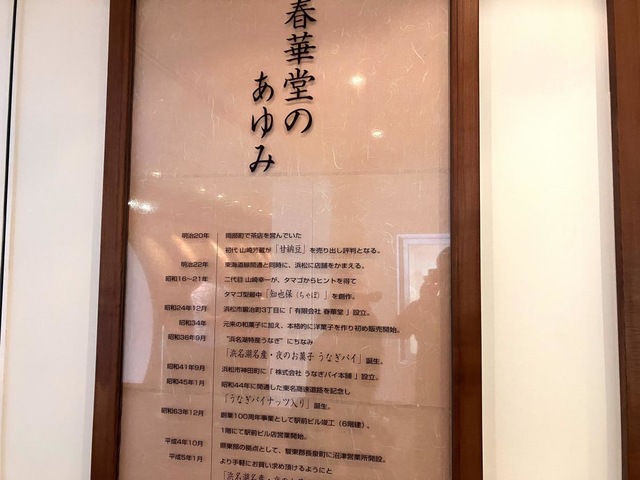 春華堂の
あゆみ
明治20年 岡部町で茶店を営んでいた
初代 山崎芳蔵が「甘納豆」を売り出し評判となる。
明治22年 東海道線開通と同時に、浜松に店舗をかまえる。
昭和16~21年 二代目 山崎幸一が、タマゴからヒントを得て
タマゴ型最中「知也保(ちゃぼ)」を創作。
昭和24年12月 浜松市鍛冶町3丁目に「有限会社 春華堂」設立。
昭和34年 元来の和菓子に加え、本格的に洋菓子を作り初め販売開始。
昭和36年9月 "浜名湖特産うなぎ"にちなみ
「浜名湖名産・夜のお菓子 うなぎパイ」誕生。
昭和41年9月 浜松市神田町に「株式会社 うなぎパイ本舗」設立。
昭和45年1月 昭和44年に開通した東名高速道路を記念し
「うなぎパイナッツ入り」誕生。
昭和63年12月 創業100周年事業として駅前ビル竣工(6階建)、
1階にて駅前ビル店営業開始。
平成4年10月 県東部の拠点として、駿東郡長泉町に沼津営業所開設。
平成5年1月 より手軽にお買い求め頂けるようにと
「浜名湖名産・夜のお菓